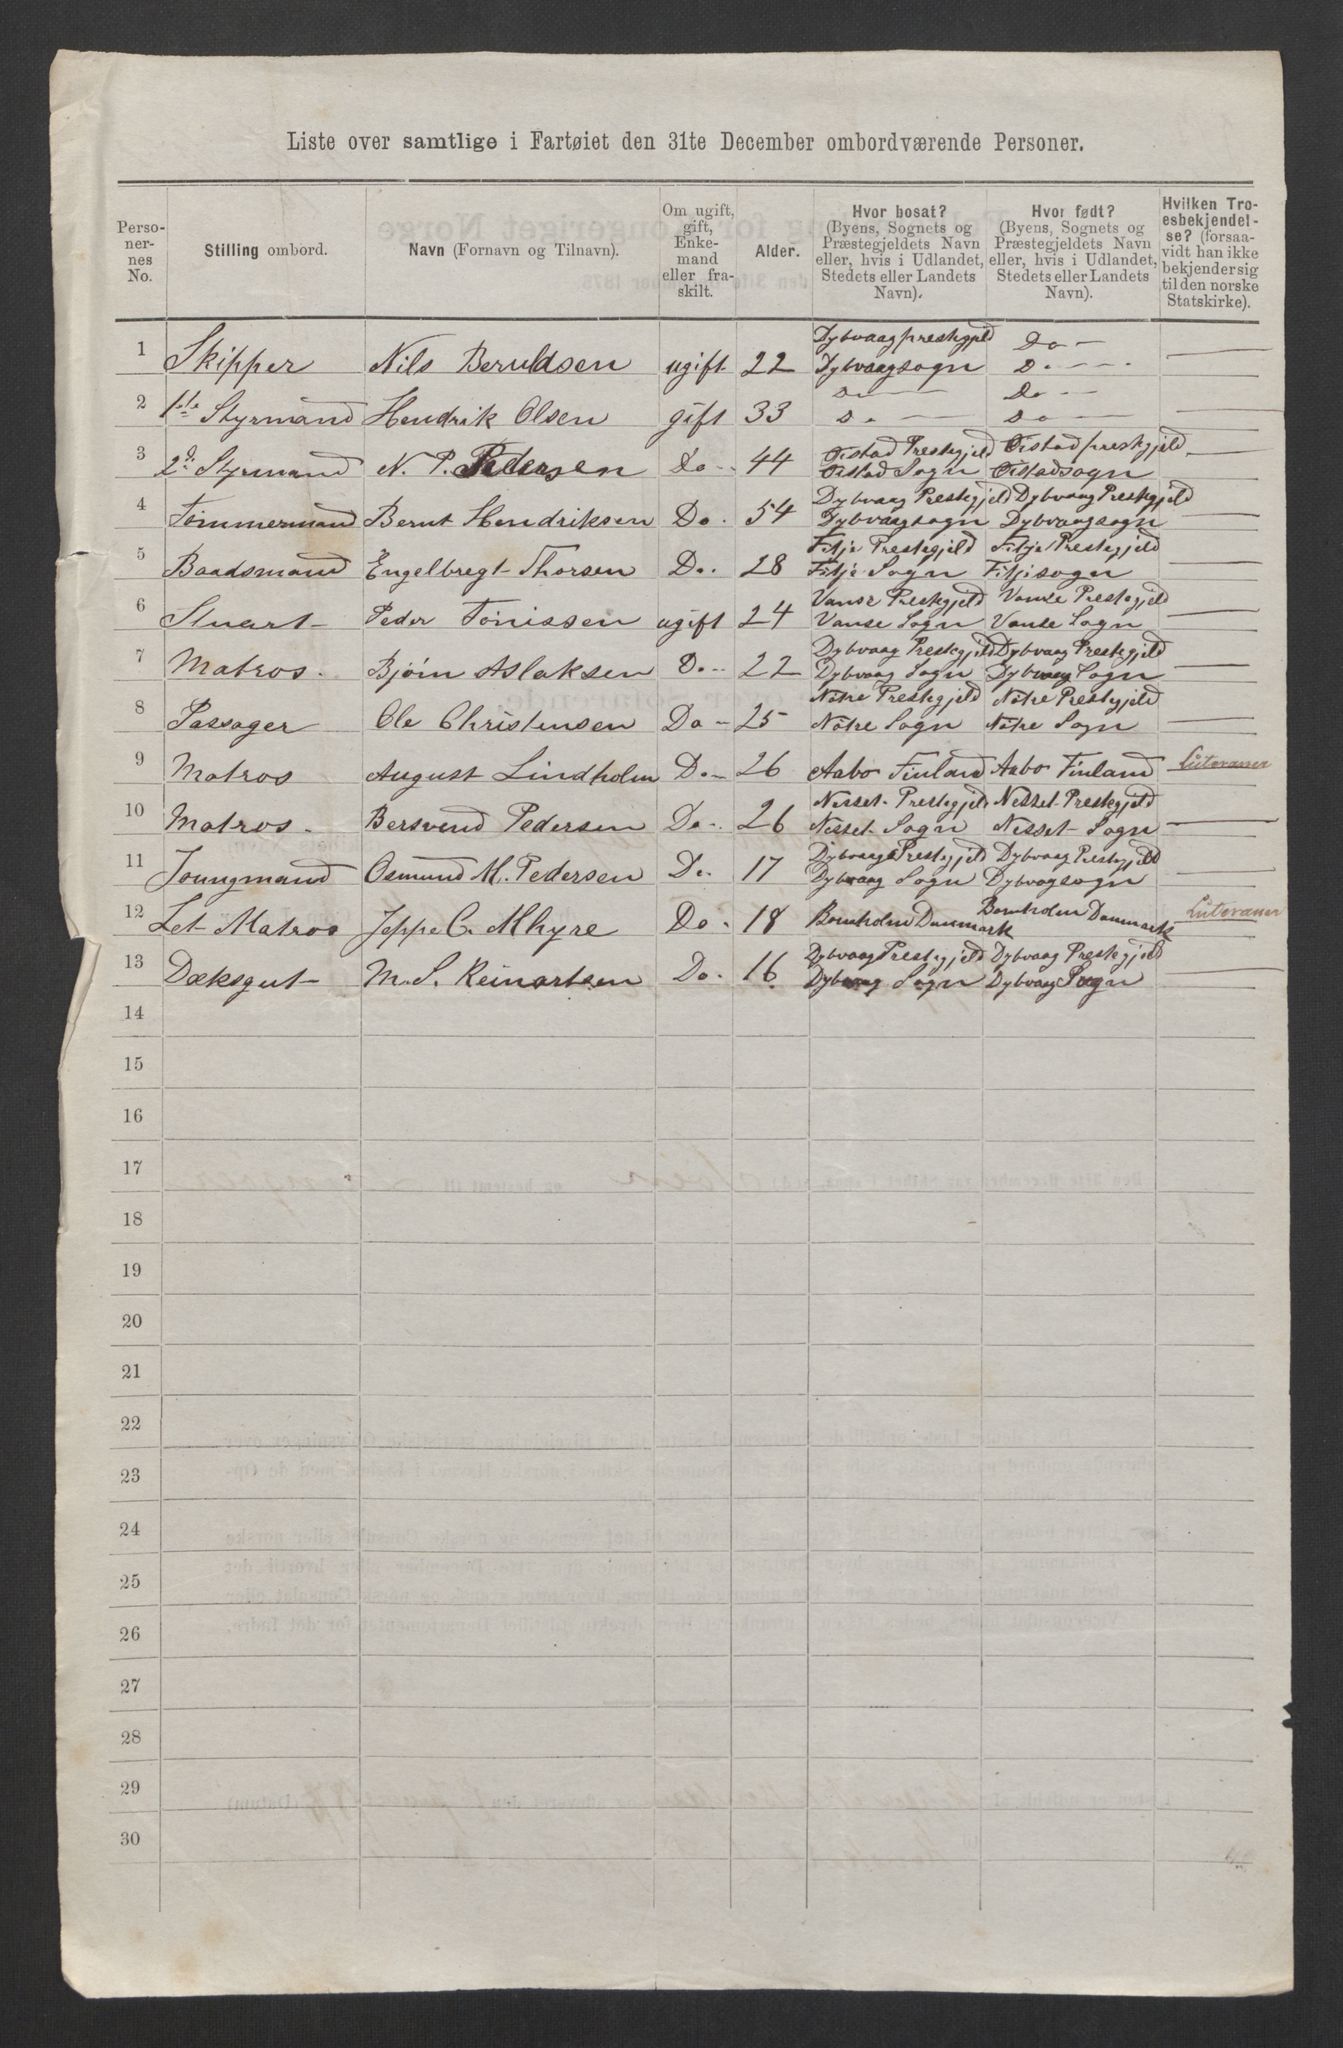 Liste over samtlige i Fartøiet den 31te December ombordværende Personer.
Perso-
ner-
nes
No.
Stilling ombord.
Navn (Fornavn og Tilnavn).
Om ugift,
gift,
Enke-
mand
eller fra-
skilt.
Alder.
Hvor bosat?
(Byens, Sognets og
Præstegjeldets Navn
eller, hvis i Udlandet,
Stedets eller Landets
Navn).
Hvor født?
(Byens, Sognets og
Præstegjeldets Navn
eller, hvis i Udlandet,
Stedets eller Landets
Navn).
Hvilken Tro-
esbekjendel-
se? (forsaa-
vidt han ikke
bekjender sig
til den norske
Statskirke).
1 Skipper Nils Beruldsen ugift 22 Dybvaag prestegjeld Do -
Dybvaagsogn Do -
2 1ste Styrmand Hendrik Olsen gift 33 Do - Do -
Do - Do -
3 2d. Styrmand N. P. Pedersen Do - 44 Øistad Prestegjeld Øistad preskgjeld
Øistad Sogn Øistadsogn
4 Tømmermand Bernt Hendriksen Do. 54 Dybvaag Prestegjeld Dybvaag Prestegjeld
Dybvaagsogn Dybvaagsogn
5 Baadsmand Engelbregt Thorsen Do. 28 Fitje Prestegjeld Fitje Prestegjeld
Fitje Sogn Fitjisogn
6 Stuart Peder Tønissen ugift 24 Vanse Prestegjeld Vanse Prestegjeld
Vanse Sogn Vanse Sogn
7 Matros. Bjørn Aslaksen Do - 22 Dybvaag Prestegjeld Dybvaag Prestegjeld
Dybvaag Sogn Dybvaag Sogn
8 Passager Ole Christensen Do - 25 Nøtre Prestegjeld Nøtre Prestegjeld
Nøtre Sogn Nøtre Sogn
9 Matros August Lindholm Do - 26 Aabo Finland Aabo Finland Luteraner
10 Matros. Bersvend Pedersen Do - 26 Nesset Prestegjeld Nesset Prestegjeld
Nesset Sogn Nesset Sogn
11 Joungmand Osmund M. Pedersen Do. 17 Dybvaag Prestegjeld Dybvaag Prestegjeld
Dybvaag Sogn Dybvagsogn
12 Let Matros Jeppe C. Mhyre Do. 18 Bornholm Danmark Bornholm Danmark Luteraner
13 Dæksgut M. S. Reinartsen Do. 16 Dybvaag Prestegjeld Dybvaag Prestegjeld
Dybvaag Sogn Dybvaag Sogn
14
15
16
17
18
19
20
21
22
23
24
25
26
27
28
29
30